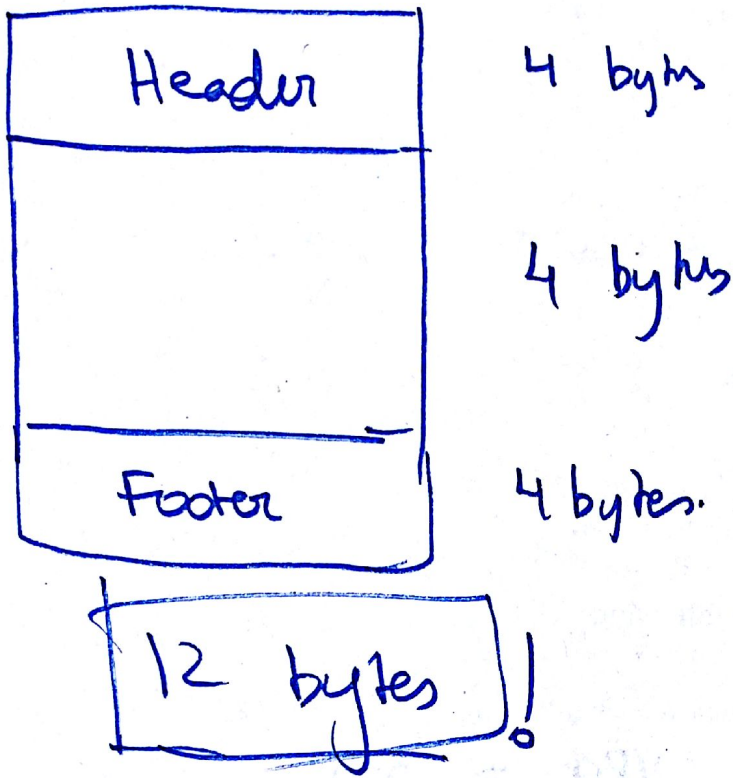 Header 4 bytes
4 bytes
Footer 4 bytes.
12 bytes !